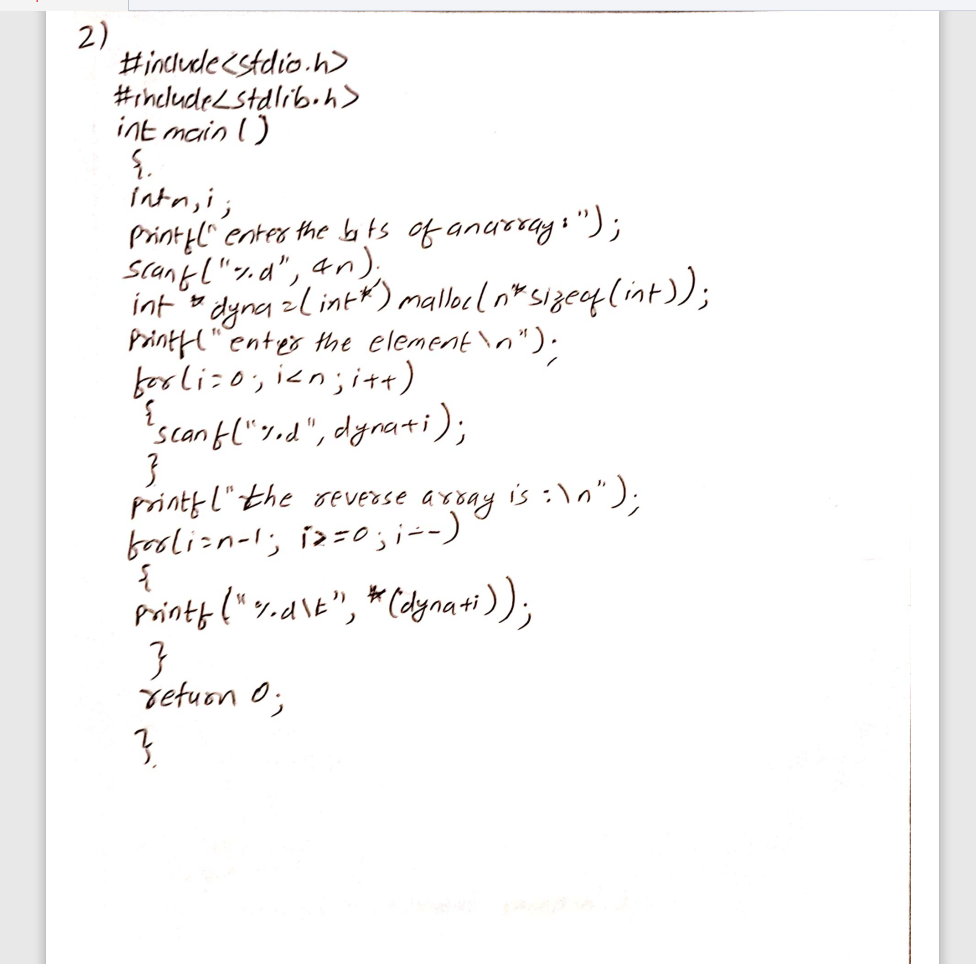 2)
#include<stdio.h>
#include<stdlib.h>
int main()
{
int n,i;
printf("enter the bits of an array:");
scanf("%d", &n);
int *dyna=(int*)malloc(n*sizeof(int));
printf("enter the element\n");
for(i=0;i<n;i++)
{
scanf("%d", dyna+i);
}
printf("the reverse array is:\n");
for(i=n-1; i>=0;i--)
{
printf("%d\t", *(dyna+i));
}
return 0;
}